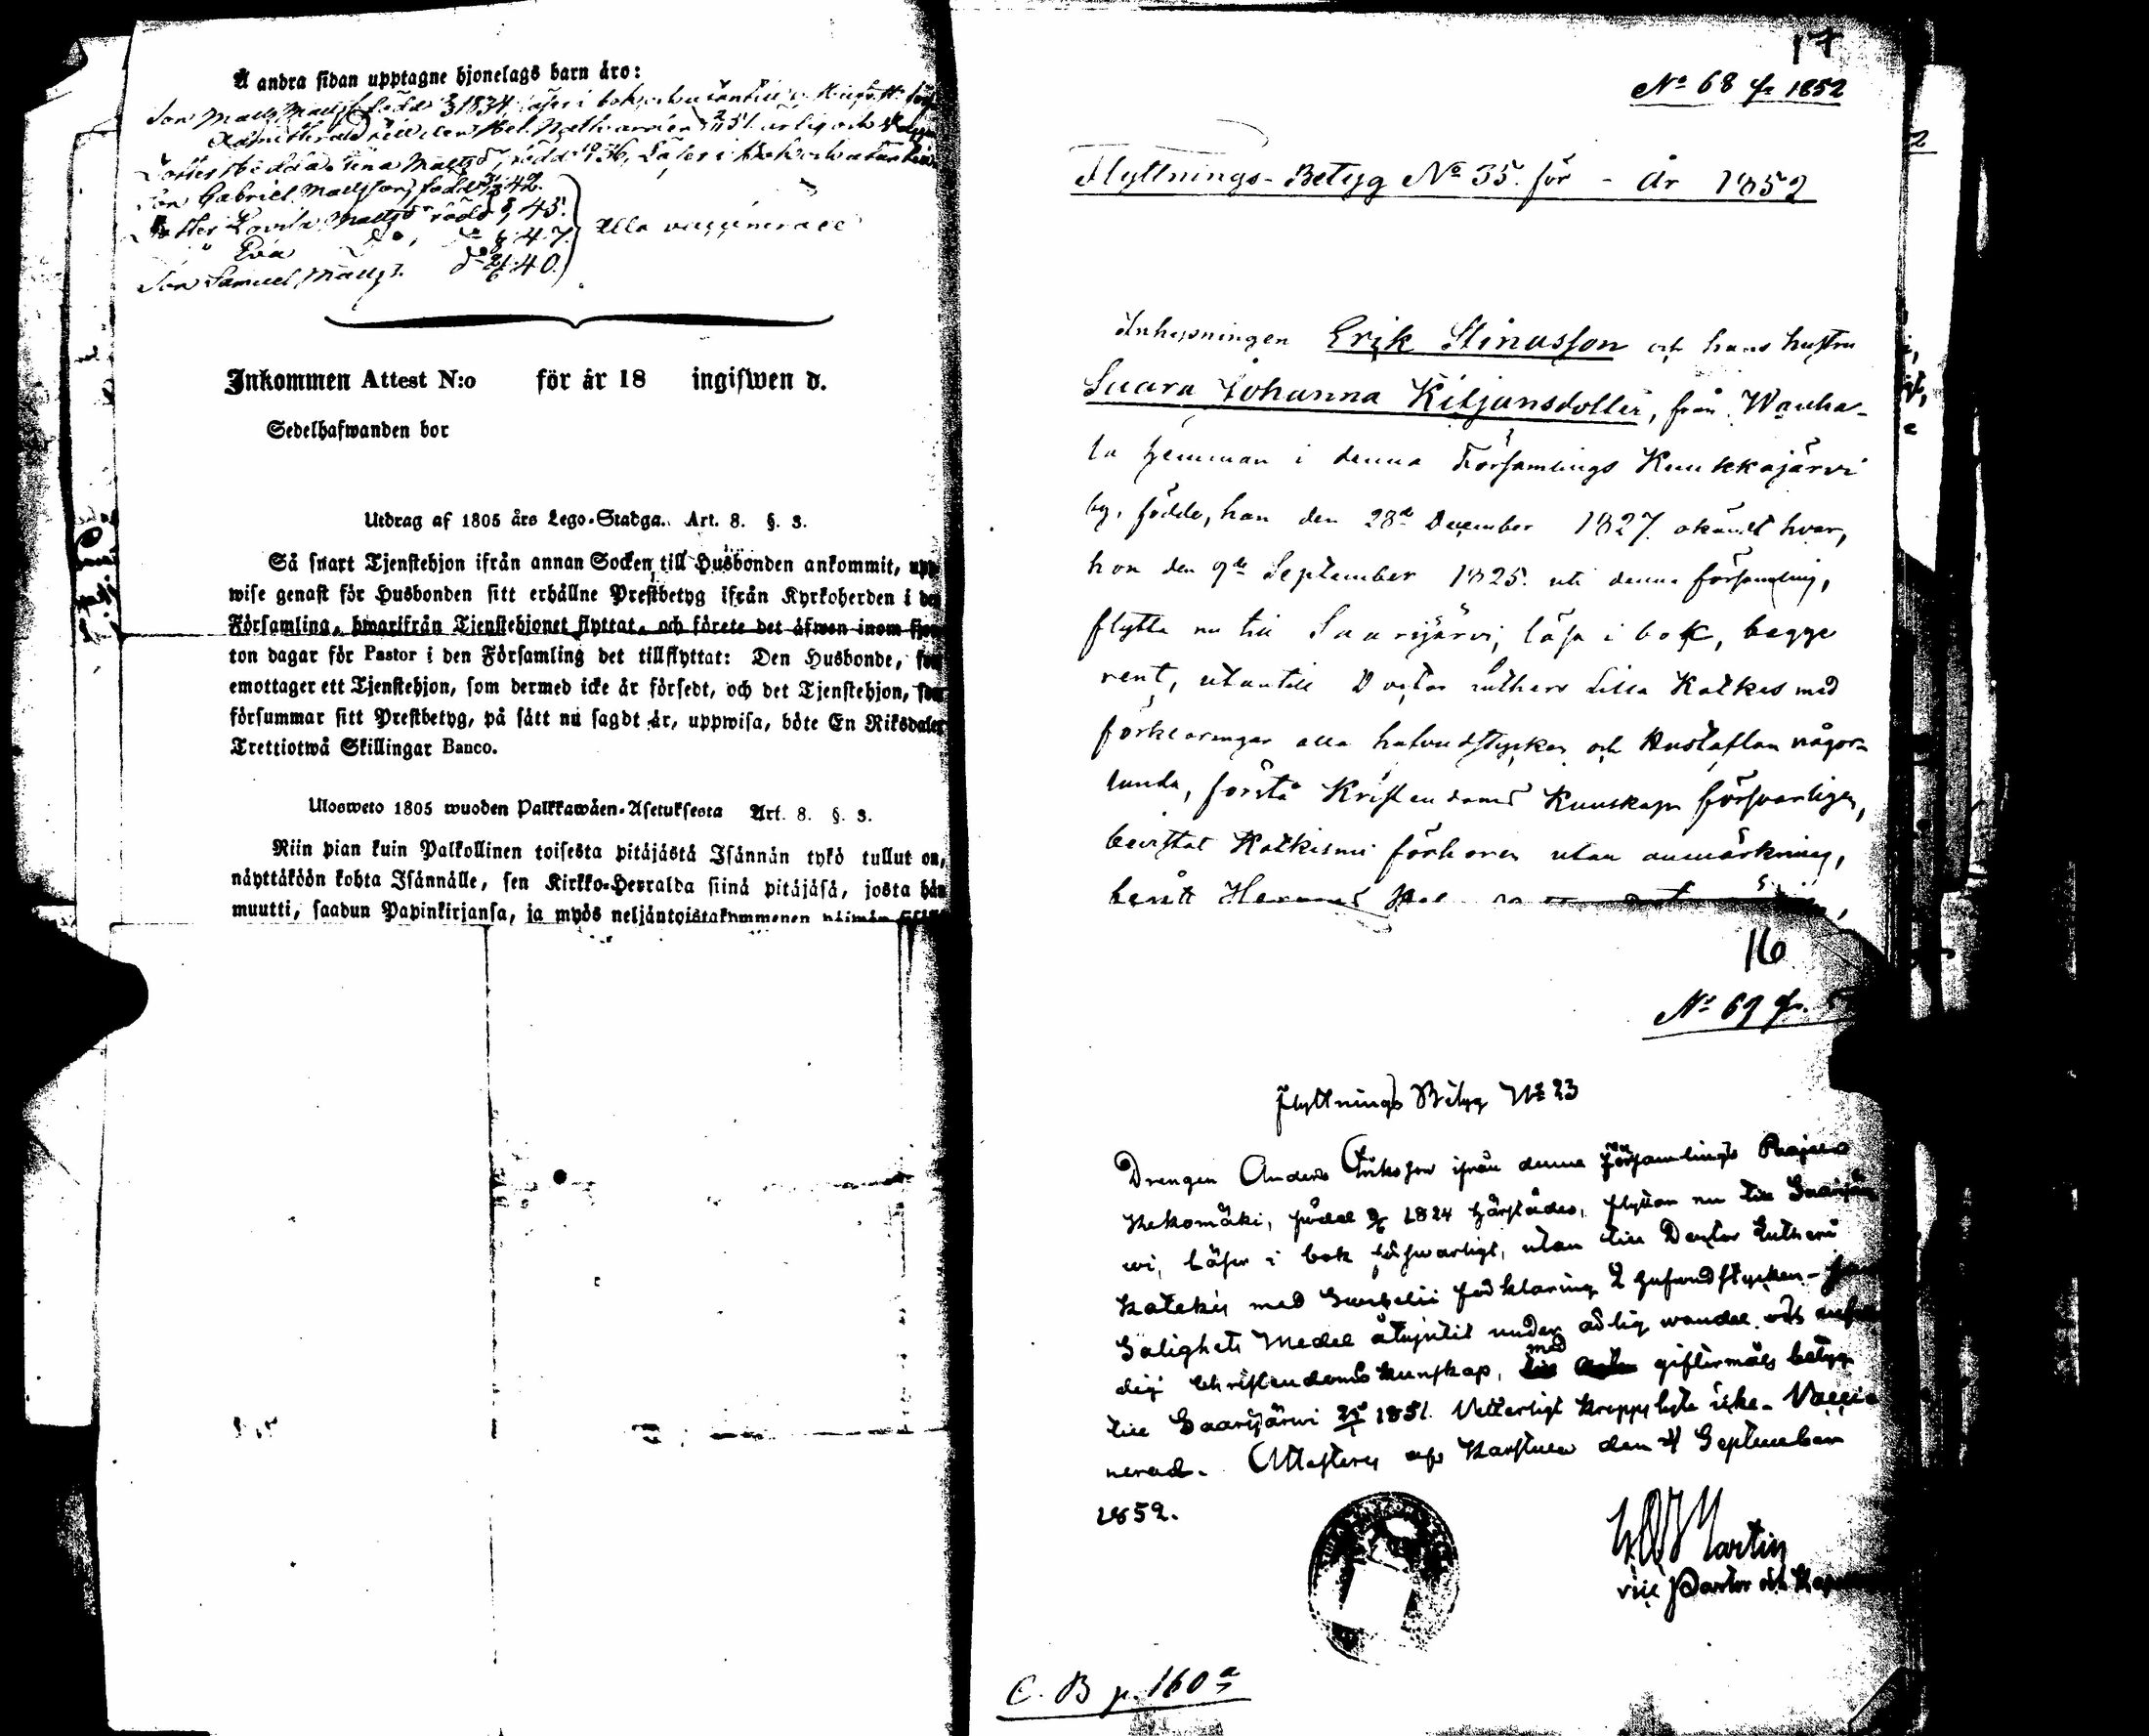 Å andra sidan upptagne hjonelags barn äro:
Son Matts Mattss. född 1834. läser i bok och utantill
Admitterad till den Hel. Nattvarden 51. ärlig och
Dotter Hedda Stina Mattsd, född 36, Läser i bok och utantill
Son Gabriel Mattsson, född 42.
Dotter Lovisa Mattsdr född 45.
" Eva do, do 8 47.
Son Samuel Mattss. do 40.
Alla vaccinerade
Inkommen Attest N:o för år 18 ingifwen d.
Sedelhafwanden bor
Utdrag af 1805 års Lego-Stadga. Art. 8. §. 3.
Så snart Tjenstehjon ifrån annan Socken till Husbonden ankommit, upp
wise genast för Husbonden sitt erhållne Prestbetyg ifrån Kyrkoherden i den
Församling, hwarifrån Tjenstehjonet flyttat, och förete det äfwen inom fjor
ton dagar för Pastor i den Församling det tillflyttat: Den Husbonde, som
emottager ett Tjenstehjon, som dermed icke är försedt, och det Tjenstehjon, som
försummar sitt Prestbetyg, på sätt nu sagdt är, uppwisa, böte En Riksdaler
Trettiotwå Skillingar Banco.
Ulosweto 1805 wuoden Palkkawäen-Asetuksesta Art. 8. §. 3.
Niin pian kuin Palkollinen toisesta pitäjästä Isännän tykö tullut on,
näyttäköön kohta Isännälle, sen Kirkko-Herralda siinä pitäjäsä, josta hän
muutti, saadun Papinkirjansa, ja myös neljäntoistakymmenen päiwän
17
No 68 fr 1852
Flyttnings-Betyg No 35. för - År 1852
Inhysningen Erik Stinasson och hans hustru
Saara Johanna Kitjansdotter, från Wanha-
la hemman i denna Församlings Kuukkajärvi
by, födde, han den 28de December 1827. okändt hvar,
hon den 9de September 1825. uti denna församling,
flytta nu till Saarijärvi, läsa i bok, begge
rent, utantill Doctor Luthers Lilla Katkes med
förklaringar alla hufvudstycken och Hustaflan någor-
lunda, förstå Kristendoms Kunskap försvarligen,
bevistat Katkismi förhören utan anmärkning,
begått Herrans
16
No 69 fr. 5
Flyttnings Betyg No 23
Drengen Anders Eriksson ifrån denna församlings
Kekomäki, född 1824 härstädes, flyttar nu till Saarijär
wi, läser i bok försvarligt, utan till Doctor Lutheri
Katekes med Swebelii förklaring 2 hufvudstycken -
Salighets Medel åtnjutit under ärlig wandel och
dig Christendoms kunskap, med giftermåls betyg
till Saarijärwi 1851. Vetterligt kroppslyte icke. Vacci
nerad. Attesterar af Karstula den 4 September
1852.
Martin
vice Pastor och Kap
C. B p. 160 a